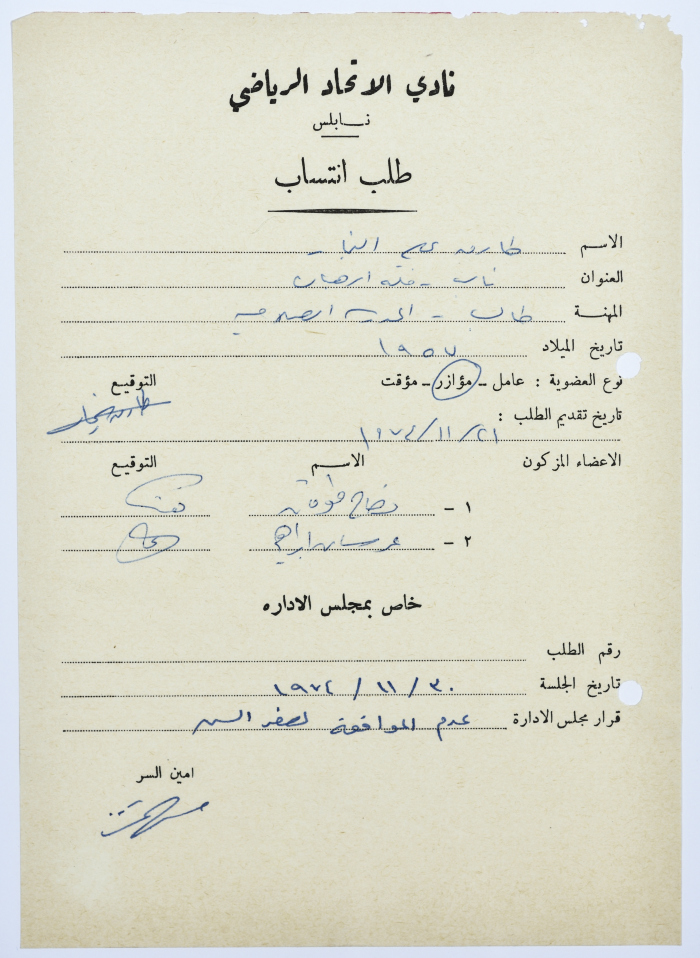 نادي الاتحاد الرياضي
نابلس
طلب انتساب
الاسم طارق
العنوان نابلس -
المهنة طالب - المدرسة الصلاحية
تاريخ الميلاد ١٩٥٧
نوع العضوية : عامل - مؤازر - مؤقت التوقيع
تاريخ تقديم الطلب :
٢١/١١/١٩٧٤
الاعضاء المزكون الاسم التوقيع
١ - نضال طوقان
٢ - ابراهيم
خاص بمجلس الاداره
رقم الطلب
تاريخ الجلسة ٣٠/١١/١٩٧٤
قرار مجلس الادارة عدم الموافقة لصغر السن
امين السر